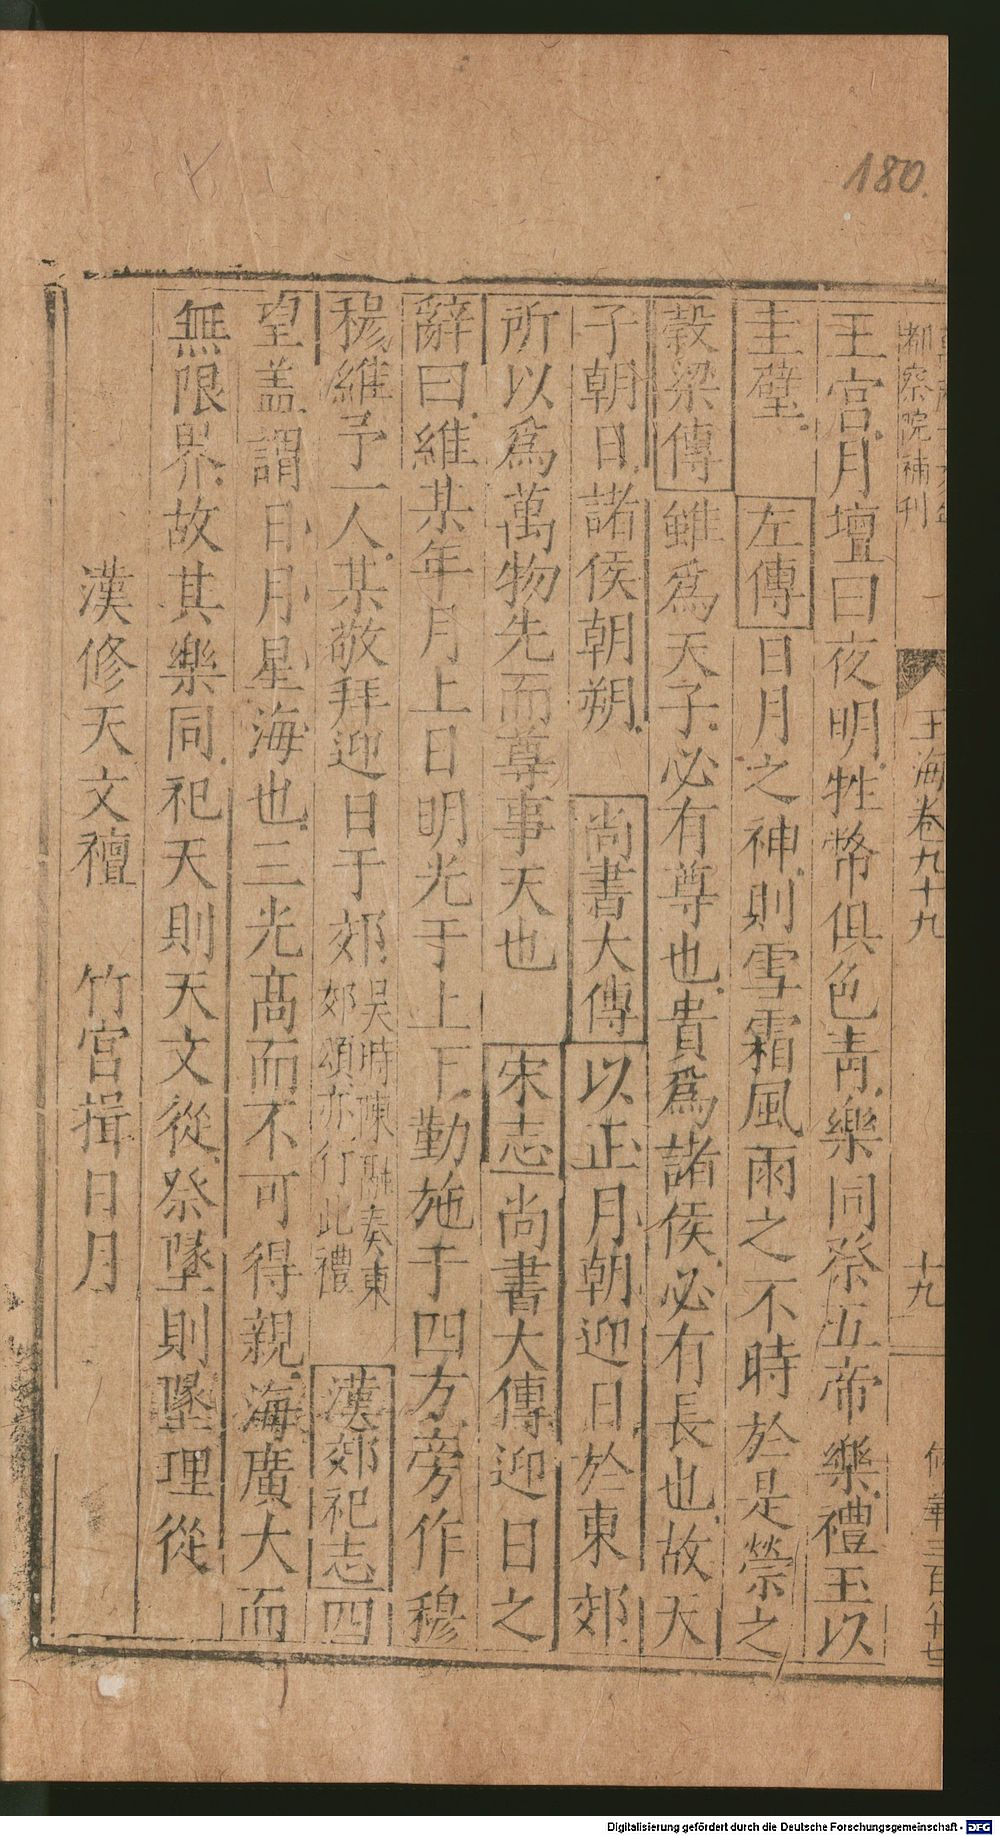 180.
都察院補刊
玉海卷九十九
十九
王宮月壇曰夜明牲幣俱色青樂同祭五帝樂禮玉以
圭璧左傳日月之神則雪霜風雨之不時於是禜之
穀梁傳雖爲天子必有尊也貴爲諸侯必有長也故天
子朝日諸侯朝朔尚書大傳以正月朝迎日於東郊
所以爲萬物先而尊事天也宋志尚書大傳迎日之
辭曰維某年月上日明光于上下勤施于四方旁作穆
穆維予一人某敬拜迎日于郊吳時陳融奏東郊頌亦行此禮漢郊祀志四
望盖謂日月星海也三光高而不可得親海廣大而
無限界故其樂同祀天則天文從祭墬則墬理從
漢修天文襢 竹宮揖日月
Digitalisierung gefördert durch die Deutsche Forschungsgemeinschaft - DFG